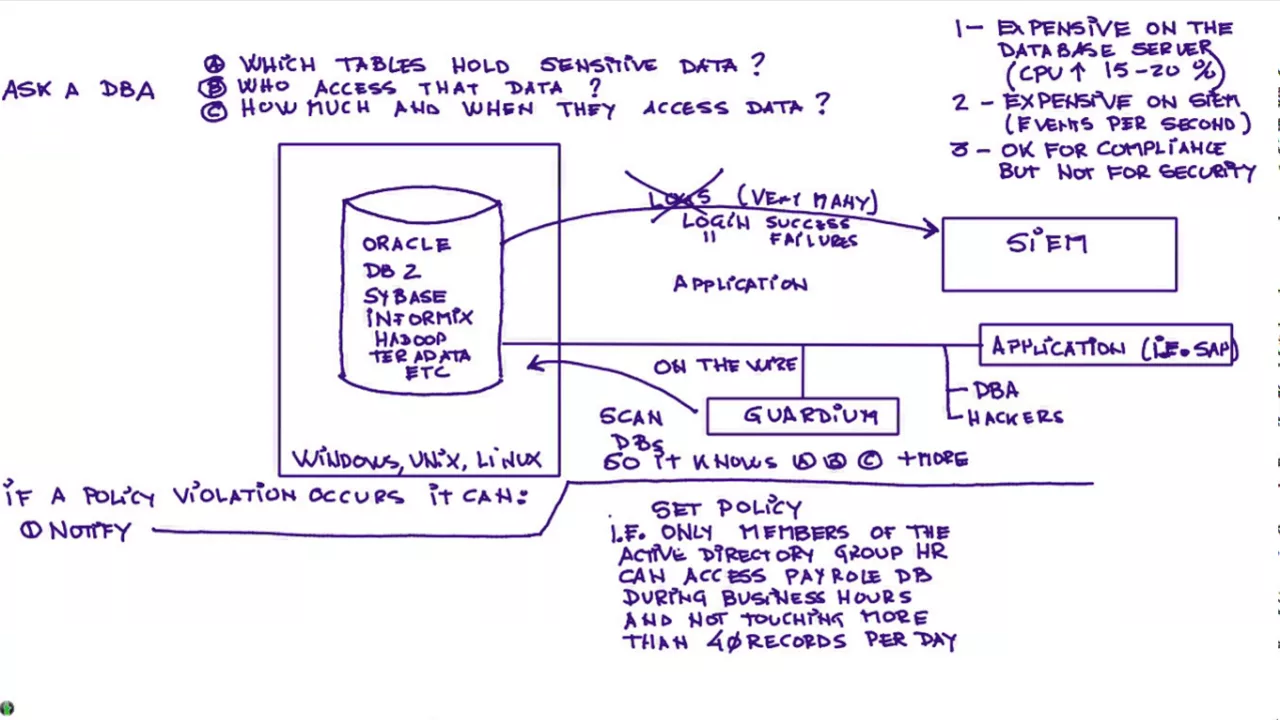 1- EXPENSIVE ON THE
DATABASE SERVER
(CPU↑ 15-20 %)
2 - EXPENSIVE ON SIEM
(EVENTS PER SECOND)
3- OK FOR COMPLIANCE
BUT NOT FOR SECURITY
ASK A DBA
Ⓐ WHICH TABLES HOLD SENSITIVE DATA ?
Ⓑ WHO ACCESS THAT DATA ?
Ⓒ HOW MUCH AND WHEN THEY ACCESS DATA ?
LOGS (VERY MANY)
LOGIN SUCCESS
" FAILURES
APPLICATION
SIEM
ORACLE
DB2
SYBASE
INFORMIX
HADOOP
TERADATA
ETC
WINDOWS, UNIX, LINUX
ON THE WIRE
APPLICATION (I.E. SAP)
DBA
HACKERS
GUARDIUM
SCAN
DBs
SO IT KNOWS Ⓐ Ⓑ Ⓒ +MORE
IF A POLICY VIOLATION OCCURS IT CAN:
① NOTIFY
SET POLICY
I.E. ONLY MEMBERS OF THE
ACTIVE DIRECTORY GROUP HR
CAN ACCESS PAYROLE DB
DURING BUSINESS HOURS
AND NOT TOUCHING MORE
THAN 40 RECORDS PER DAY